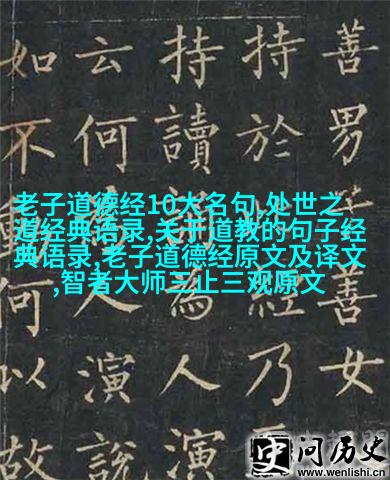 善男善女
持於經乃
持讀為人演
云何人演說
如不何以故
老子道德经10大名句,处世之
道经典语录,关于道教的句子经
典语录,老子道德经原文及译文
,智者大师三止三观原文
史问历史
www.wenlishi.cn